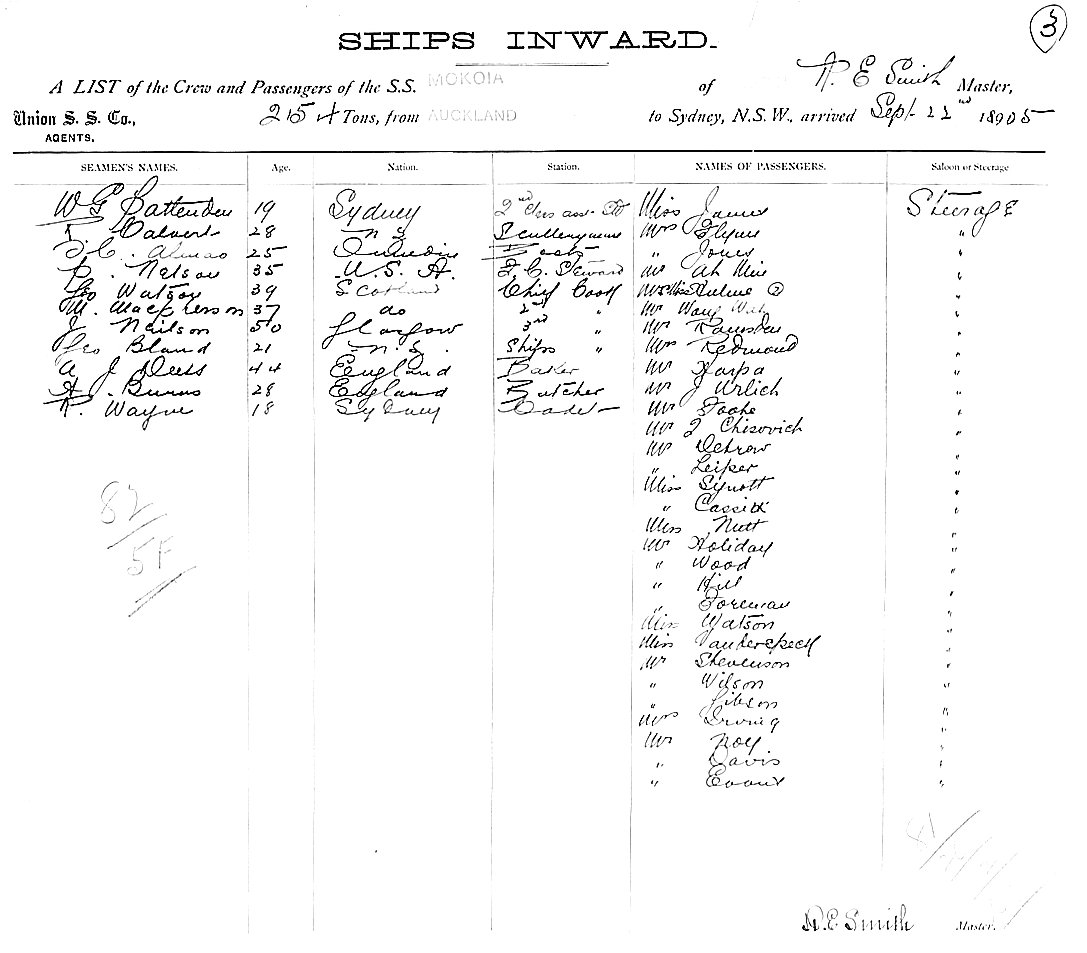 3
SHIPS INWARD.
A LIST of the Crew and Passengers of the S.S. MOKOIA of A. E Smith Master,
Union S. S. Co., 2154 Tons, from AUCKLAND to Sydney, N.S.W., arrived Sept. 22nd 18905
AGENTS.
SEAMEN'S NAMES. Age. Nation. Station. NAMES OF PASSENGERS. Saloon or Steerage
W G Battenden 19 Sydney 2nd Miss James Steerage
Calvert 28 N S Sculleryman Mrs Flynn "
25 Dunedin " Jones "
Nelson 35 U. S. A. F. C. Steward Mr Ah "
Geo Watson 39 Scotland Chief Cook Hulme 2 "
M. Macpherson 37 do 2nd " Mr Wong Wah "
J Neilson 50 Glasgow 3rd " Mr Ramsden "
Geo Bland 21 N. S. Ships " Mrs Redmond "
A J Dees 44 England Baker Mr Harpa "
A. Burns 28 England Butcher Mr J Urlich "
Wayne 18 Sydney Cadet Mr Foote "
Mr J Chisovich "
Mr Detrow "
" Leiper "
Miss Synott "
" Cassidi "
Miss Nutt "
Mr Holiday "
" Wood "
" Hill "
" Foreman "
Miss Watson "
Miss Vanderspeck "
Mr Stevenson "
" Wilson "
" Gibson "
Mrs Irving "
Mr Noy "
" Davis "
" Evans "
82
5F
A. E Smith Master.